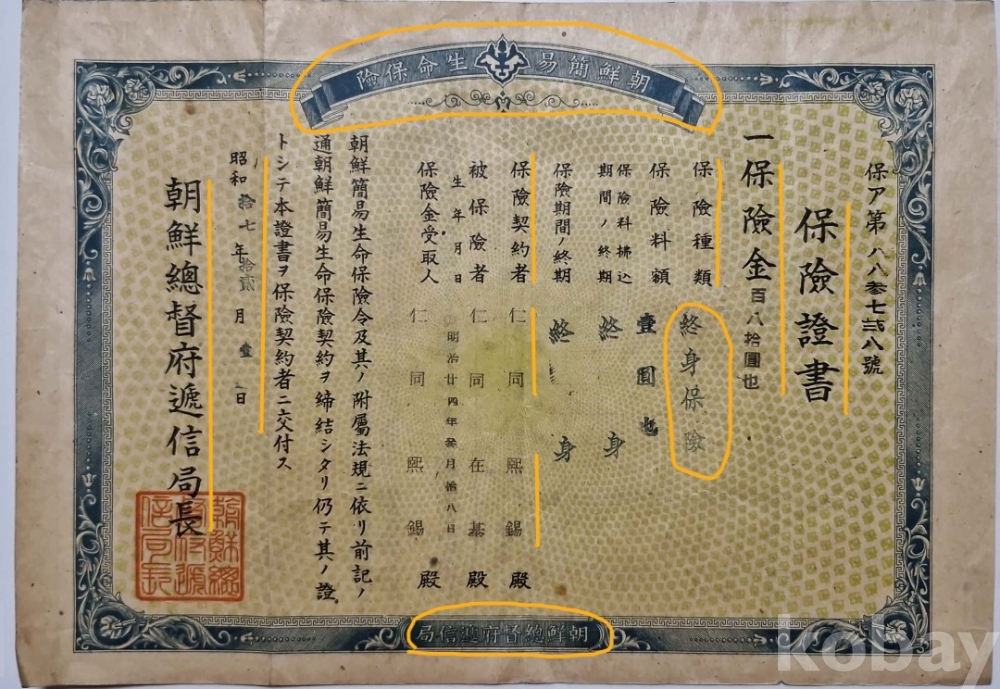 朝鮮簡易生命保險
保ア第八八参七弐八號
保險證書
一保險金百八拾圓也
保險種類 終身保險
保險料額 壹圓也
保險料拂込
期間ノ終期 終身
保險期間ノ終期 終身
保險契約者 仁同熙錫殿
被保險者 仁同在基殿
生年月日 明治廿四年参月拾八日
保險金受取人 仁同熙錫殿
朝鮮簡易生命保險令及其ノ附屬法規ニ依リ前記ノ
通朝鮮簡易生命保險契約ヲ締結シタリ仍テ其ノ證
トシテ本證書ヲ保險契約者ニ交付ス
昭和拾七年拾貳月壹日
朝鮮總督府遞信局長
朝鮮總督府遞信局長
朝鮮總督府遞信局
kobay